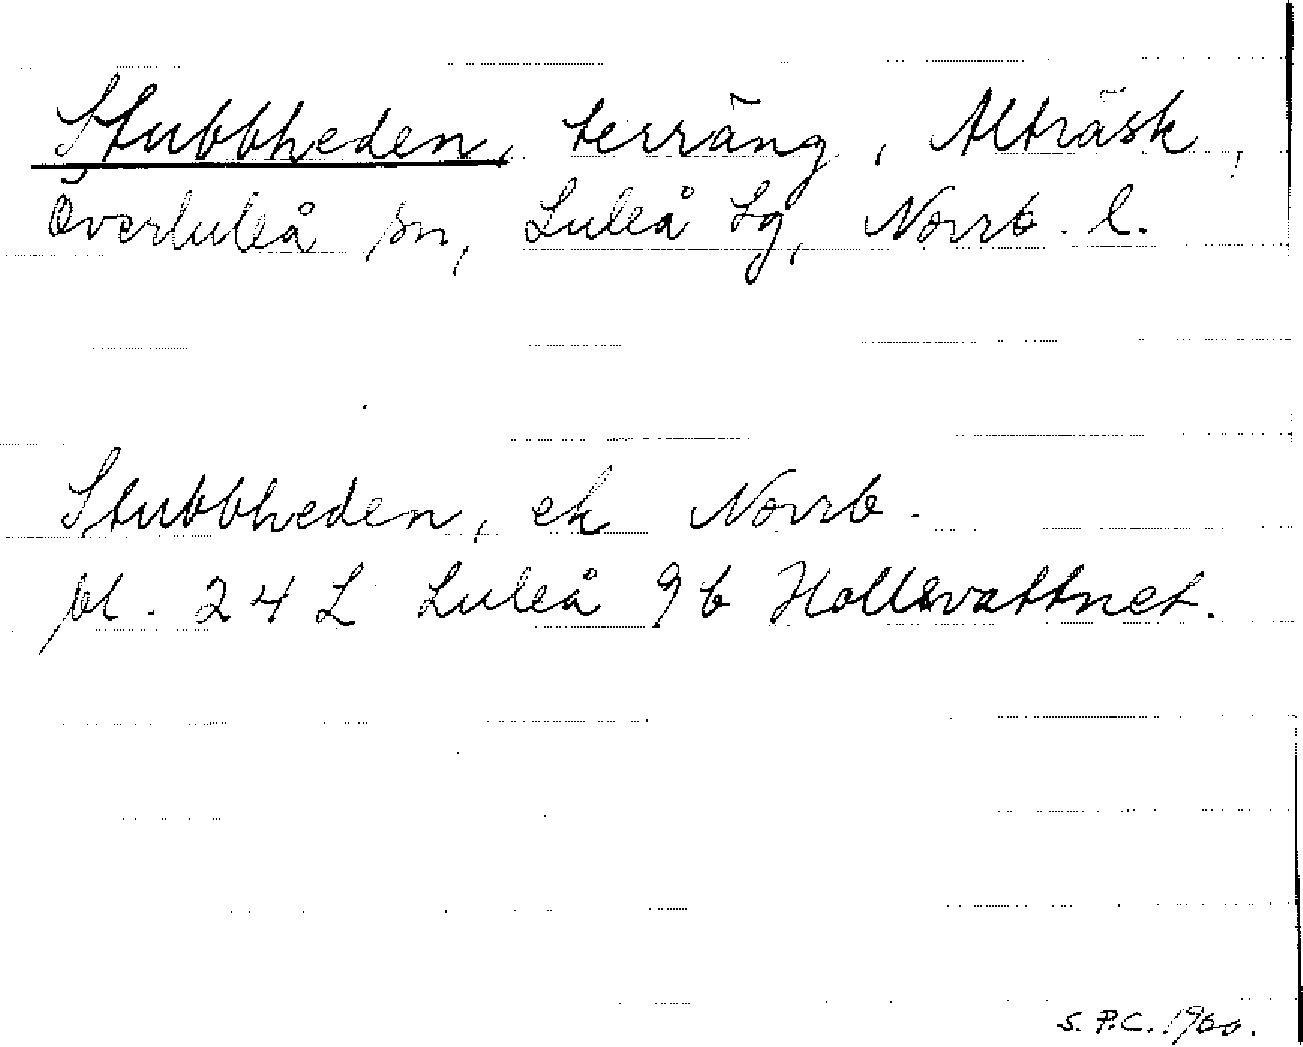 Stubbheden, terräng, Alträsk,
Överluleå sn, Luleå tg, Norrb. l.
Stubbheden, ek Norrb.
bl. 24 L Luleå 9 b Hollsvattnet.
S. P. C. 1960.